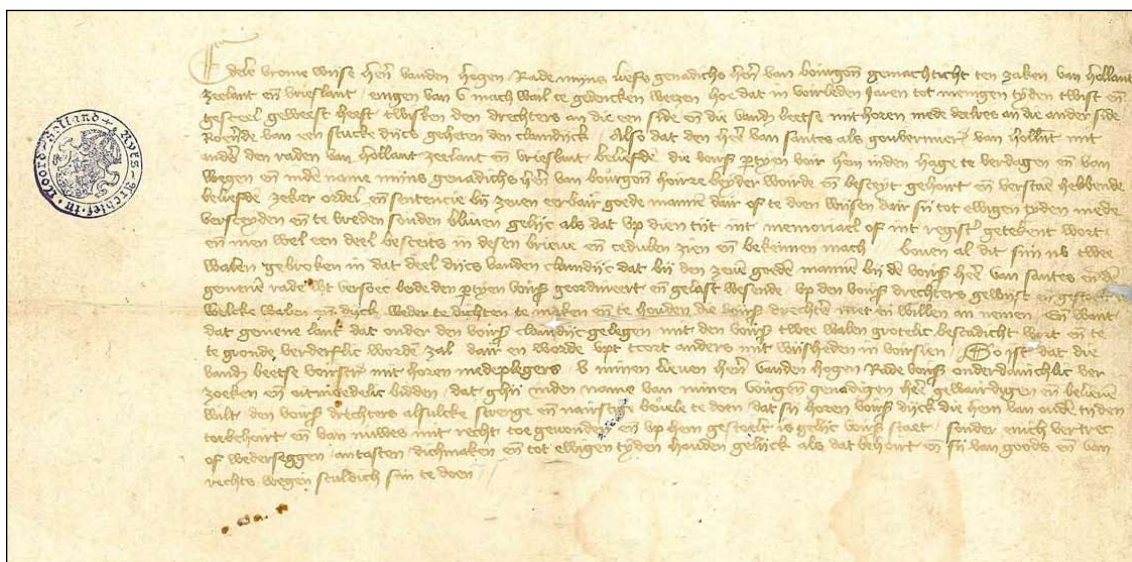 Edele vrome wise heren vanden hogen Rade mijns liefs genadichs heren van bourgon gemachticht ten zaken van hollant
zeelant en vrieslant / enigen van u mach wail te gedencken wezen hoe dat in voirleden Jaren tot menigen tyden twist en
gesceel geweest heeft twisken den drechters an die een side en die vand beetse mit horen mede an die ander side
Roerende van een stucke dijcs geheten den claimdijck / Also dat den heren van santes als gouverneur van hollant mit
ander den raden van hollant zeelant en vrieslant beliefde die voirs partyen voir hem inden hage te verdagen en van
wegen en inden name mijns genadichs heren van bourgon hoirre beyder woirde en besceyt gehoirt en verstaen hebbende
beliefde zeker ordel en sentencie bij zeven eerbair goede mannen dair of te doen wisen dair sij tot ewigen tyden mede
versceyden en te vreden souden bliven gelijc als dat up dien tijt int memoriael of int regist geteikent wort
en men wel een deel besceits in desen brieve en cedulen zien en bekennen mach / boven al dat sijn nu twee
walen gebroken in dat deel dijcs vanden claimdijc dat bij den zeven goeden mannen bij den voirs heren van santes en den
gemenen rade wt versoec beide den partyen voirs geordineert en gelast wesende up den voirs drechters gewijst en
welcke walen en dijck weder te dichten te maken en te houden die voirs drechters niet en willen an nemen / en want
dat gemene lant dat onder den voirs claimdijc gelegen mit den voirs twee walen grotelic bescadicht wort en te
te gronde verderflic worden zal dair en worde upt tcort anders mit wijsheden in voirsien / So ist dat die
vand beetse voirscr mit horen medeplegers u minen lieven heren vanden hogen Rade voirs onderdanichlic ver
zoeken en oitmoedelic bidden dat ghij inden name van minen voirgen genadigen heren gewaerdigen en believen
wilt den voirs drechters alsulcke strenge en naerstige bevele te doen dat sij horen voirs dijck die hem van ouden tyden
toebehoirt en van nuwes mit recht toe gevonden en up hem gestoelt is gelijc voirs staet / sonder enich vertrec
of wederseggen antasten dichmaken en tot ewigen tyden houden gelijck als dat behoirt en sij van goods en van
rechts wegen sculdich sijn te doen
Rijks-Archief in Noord-Holland